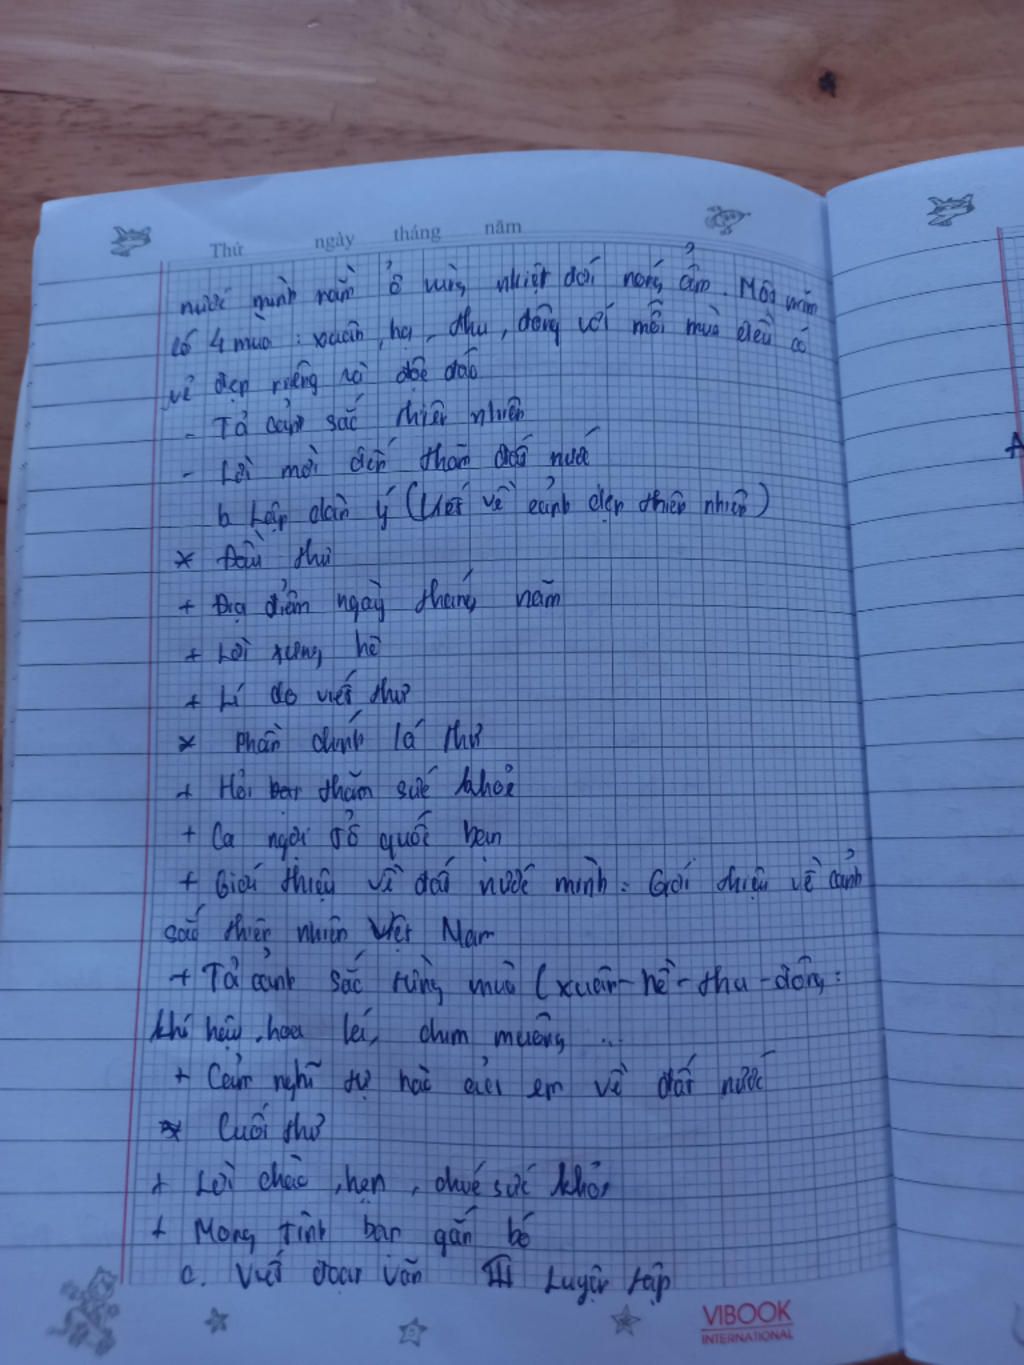 Thứ ngày tháng năm
nước mình nằm ở vùng nhiệt đới nóng ẩm. Một năm
có 4 mùa: xuân, hạ, thu, đông với mỗi mùa đều có
vẻ đẹp riêng và độc đáo
- Tả cảnh sắc thiên nhiên
- Lời mời đến thăm đất nước
b. Lập dàn ý (Viết về cảnh đẹp thiên nhiên)
* Đầu thư
+ Địa điểm ngày tháng năm
+ Lời xưng hô
+ Lí do viết thư
* Phần chính lá thư
+ Hỏi thăm sức khoẻ
+ Ca ngợi tổ quốc bạn
+ Giới thiệu về đất nước mình: Giới thiệu về cảnh
sắc thiên nhiên Việt Nam
+ Tả cảnh sắc từng mùa (xuân - hè - thu - đông:
khí hậu, hoa lá, chim muông ...
+ Cảm nghĩ tự hào của em về đất nước
* Cuối thư
+ Lời chào, hẹn, chúc sức khỏe
+ Mong tình bạn gắn bó
c. Viết đoạn văn III Luyện tập
VIBOOK
INTERNATIONAL